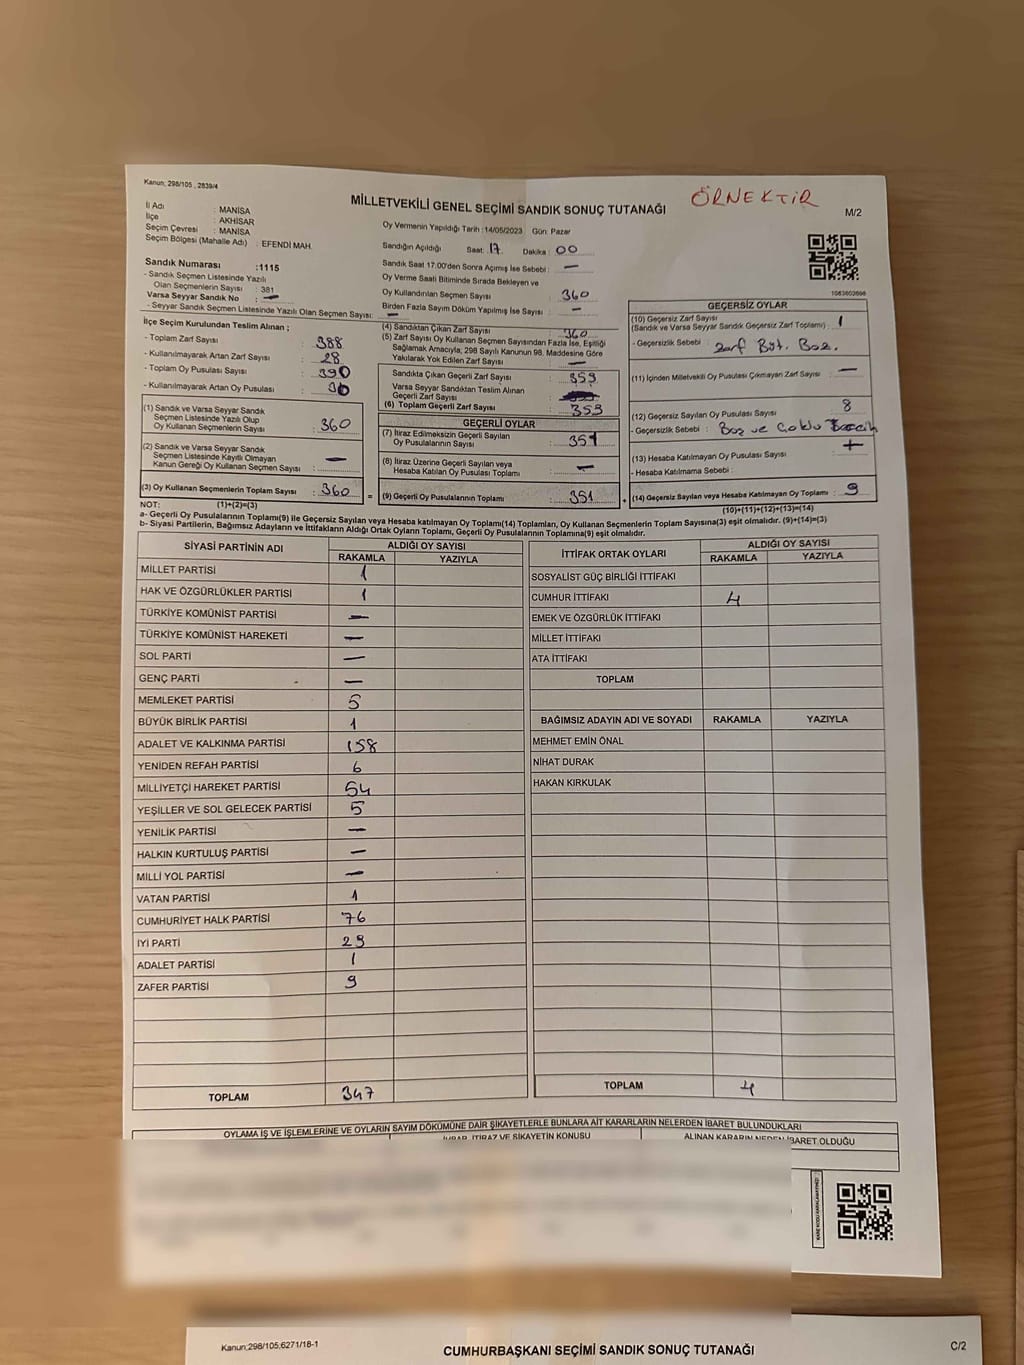 Kanun; 298/105 , 2839/4
MİLLETVEKİLİ GENEL SEÇİMİ SANDIK SONUÇ TUTANAĞI
ÖRNEKTİR
M/2
İl Adı : MANİSA
İlçe : AKHİSAR
Seçim Çevresi : MANİSA
Seçim Bölgesi (Mahalle Adı) : EFENDİ MAH.
Sandık Numarası :1115
- Sandık Seçmen Listesinde Yazılı
Olan Seçmenlerin Sayısı : 381
Varsa Seyyar Sandık No : —
- Seyyar Sandık Seçmen Listesinde Yazılı Olan Seçmen Sayısı: —
Oy Vermenin Yapıldığı Tarih :14/05/2023 Gün: Pazar
Sandığın Açıldığı Saat: 17 Dakika: 00
Sandık Saat 17.00'den Sonra Açımış İse Sebebi : —
Oy Verme Saati Bitiminde Sırada Bekleyen ve
Oy Kullandırılan Seçmen Sayısı : 360
Birden Fazla Sayım Döküm Yapılmış İse Sayısı : —
İlçe Seçim Kurulundan Teslim Alınan ;
- Toplam Zarf Sayısı : 388
- Kullanılmayarak Artan Zarf Sayısı : 28
- Toplam Oy Pusulası Sayısı : 390
- Kullanılmayarak Artan Oy Pusulası : 30
(1) Sandık ve Varsa Seyyar Sandık
Seçmen Listesinde Yazılı Olup
Oy Kullanan Seçmenlerin Sayısı : 360
(2) Sandık ve Varsa Seyyar Sandık
Seçmen Listesinde Kayıtlı Olmayan
Kanun Gereği Oy Kullanan Seçmen Sayısı : —
(3) Oy Kullanan Seçmenlerin Toplam Sayısı : 360
(4) Sandıktan Çıkan Zarf Sayısı : 360
(5) Zarf Sayısı Oy Kullanan Seçmen Sayısından Fazla İse, Eşitliği
Sağlamak Amacıyla, 298 Sayılı Kanunun 98. Maddesine Göre
Yakılarak Yok Edilen Zarf Sayısı : —
Sandıkta Çıkan Geçerli Zarf Sayısı : 359
Varsa Seyyar Sandıktan Teslim Alınan
Geçerli Zarf Sayısı :
(6) Toplam Geçerli Zarf Sayısı : 359
GEÇERLİ OYLAR
(7) İtiraz Edilmeksizin Geçerli Sayılan
Oy Pusulalarının Sayısı : 351
(8) İtiraz Üzerine Geçerli Sayılan veya
Hesaba Katılan Oy Pusulası Toplamı : —
= (9) Geçerli Oy Pusulalarının Toplamı : 351
GEÇERSİZ OYLAR
(10) Geçersiz Zarf Sayısı
(Sandık ve Varsa Seyyar Sandık Geçersiz Zarf Toplamı) : 1
- Geçersizlik Sebebi : Zarf Büt. Boz.
(11) İçinden Milletvekili Oy Pusulası Çıkmayan Zarf Sayısı : —
(12) Geçersiz Sayılan Oy Pusulası Sayısı : 8
- Geçersizlik Sebebi : Boş ve Çoklu Tercih
(13) Hesaba Katılmayan Oy Pusulası Sayısı :
- Hesaba Katılmama Sebebi :
+ (14) Geçersiz Sayılan veya Hesaba Katılmayan Oy Toplamı : 9
NOT: (1)+(2)=(3)
(10)+(11)+(12)+(13)=(14)
a- Geçerli Oy Pusulaları Toplamı(9) ile Geçersiz Sayılan veya Hesaba katılmayan Oy Toplamı(14) Toplamları, Oy Kullanan Seçmenlerin Toplam Sayısına(3) eşit olmalıdır. (9)+(14)=(3)
b- Siyasi Partilerin, Bağımsız Adayların ve İttifakların Aldığı Ortak Oyların Toplamı, Geçerli Oy Pusulalarının Toplamına(9) eşit olmalıdır.
SİYASİ PARTİNİN ADI ALDIĞI OY SAYISI
RAKAMLA YAZIYLA
MİLLET PARTİSİ 1
HAK VE ÖZGÜRLÜKLER PARTİSİ 1
TÜRKİYE KOMÜNİST PARTİSİ —
TÜRKİYE KOMÜNİST HAREKETİ —
SOL PARTİ —
GENÇ PARTİ —
MEMLEKET PARTİSİ 5
BÜYÜK BİRLİK PARTİSİ 1
ADALET VE KALKINMA PARTİSİ 158
YENİDEN REFAH PARTİSİ 6
MİLLİYETÇİ HAREKET PARTİSİ 54
YEŞİLLER VE SOL GELECEK PARTİSİ 5
YENİLİK PARTİSİ —
HALKIN KURTULUŞ PARTİSİ —
MİLLİ YOL PARTİSİ —
VATAN PARTİSİ 1
CUMHURİYET HALK PARTİSİ 76
İYİ PARTİ 29
ADALET PARTİSİ 1
ZAFER PARTİSİ 9
TOPLAM 347
İTTİFAK ORTAK OYLARI ALDIĞI OY SAYISI
RAKAMLA YAZIYLA
SOSYALİST GÜÇ BİRLİĞİ İTTİFAKI
CUMHUR İTTİFAKI 4
EMEK VE ÖZGÜRLÜK İTTİFAKI
MİLLET İTTİFAKI
ATA İTTİFAKI
TOPLAM
BAĞIMSIZ ADAYIN ADI VE SOYADI RAKAMLA YAZIYLA
MEHMET EMİN ÖNAL
NİHAT DURAK
HAKAN KIRKULAK
TOPLAM 4
OYLAMA İŞ VE İŞLEMLERİNE VE OYLARIN SAYIM DÖKÜMÜNE DAİR ŞİKAYETLERLE BUNLARA AİT KARARLARIN NELERDEN İBARET BULUNDUKLARI
İHBAR, İTİRAZ VE ŞİKAYETİN KONUSU
ALINAN KARARIN NEDEN İBARET OLDUĞU
Kanun;298/105;6271/18-1
CUMHURBAŞKANI SEÇİMİ SANDIK SONUÇ TUTANAĞI
C/2